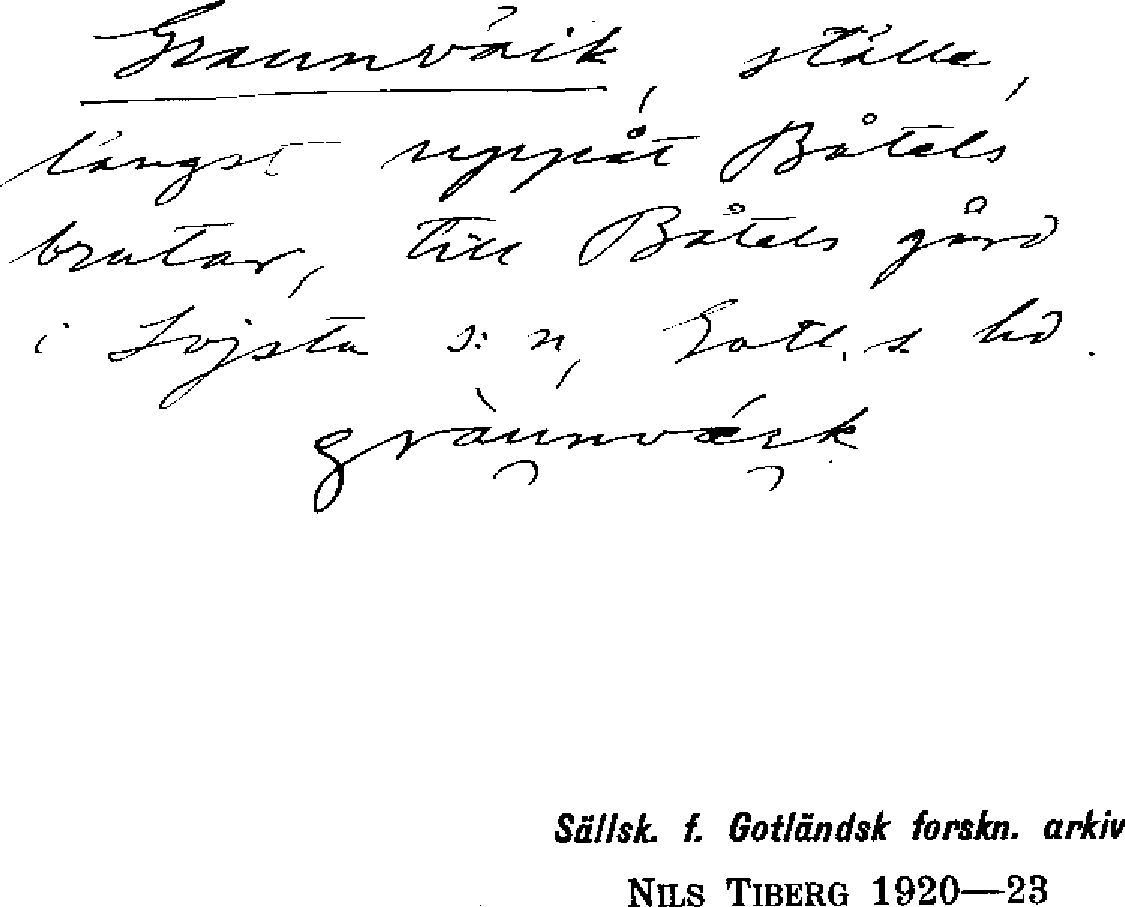 Graunväik, ställe,
längst uppåt Båtels
brutar, till Båtels gård
i Lojsta s:n, Gotl. s hd.
gràunvái̯k
Sällsk. f. Gotländsk forskn. arkiv
NILS TIBERG 1920—23